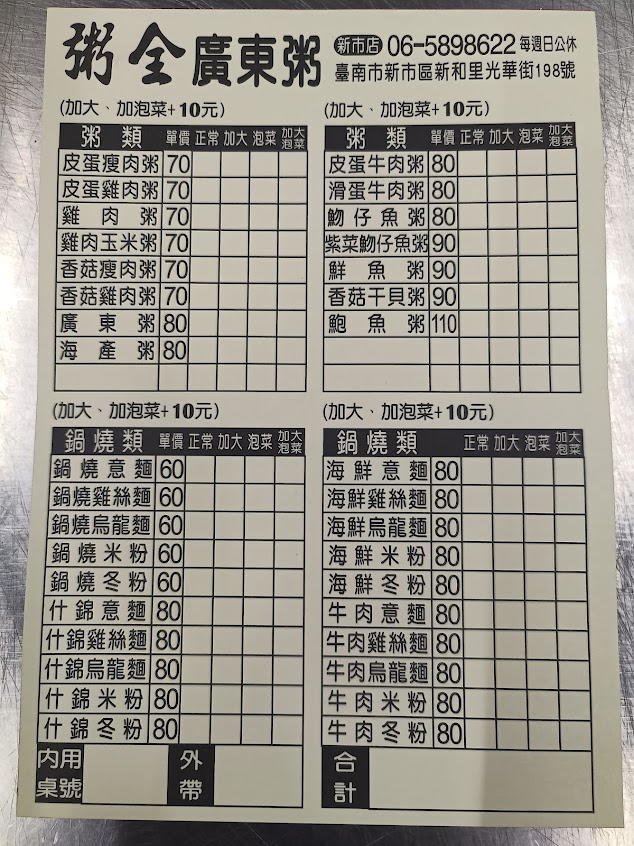 粥全廣東粥
新市店 06-5898622 每週日公休
臺南市新市區新和里光華街198號
(加大、加泡菜+10元)
粥類 單價 正常 加大 泡菜 加大泡菜
皮蛋瘦肉粥 70
皮蛋雞肉粥 70
雞肉粥 70
雞肉玉米粥 70
香菇瘦肉粥 70
香菇雞肉粥 70
廣東粥 80
海產粥 80
(加大、加泡菜+10元)
粥類 單價 正常 加大 泡菜 加大泡菜
皮蛋牛肉粥 80
滑蛋牛肉粥 80
魩仔魚粥 80
紫菜魩仔魚粥 90
鮮魚粥 90
香菇干貝粥 90
鮑魚粥 110
(加大、加泡菜+10元)
鍋燒類 單價 正常 加大 泡菜 加大泡菜
鍋燒意麵 60
鍋燒雞絲麵 60
鍋燒烏龍麵 60
鍋燒米粉 60
鍋燒冬粉 60
什錦意麵 80
什錦雞絲麵 80
什錦烏龍麵 80
什錦米粉 80
什錦冬粉 80
(加大、加泡菜+10元)
鍋燒類 正常 加大 泡菜 加大泡菜
海鮮意麵 80
海鮮雞絲麵 80
海鮮烏龍麵 80
海鮮米粉 80
海鮮冬粉 80
牛肉意麵 80
牛肉雞絲麵 80
牛肉烏龍麵 80
牛肉米粉 80
牛肉冬粉 80
內用桌號
外帶
合計